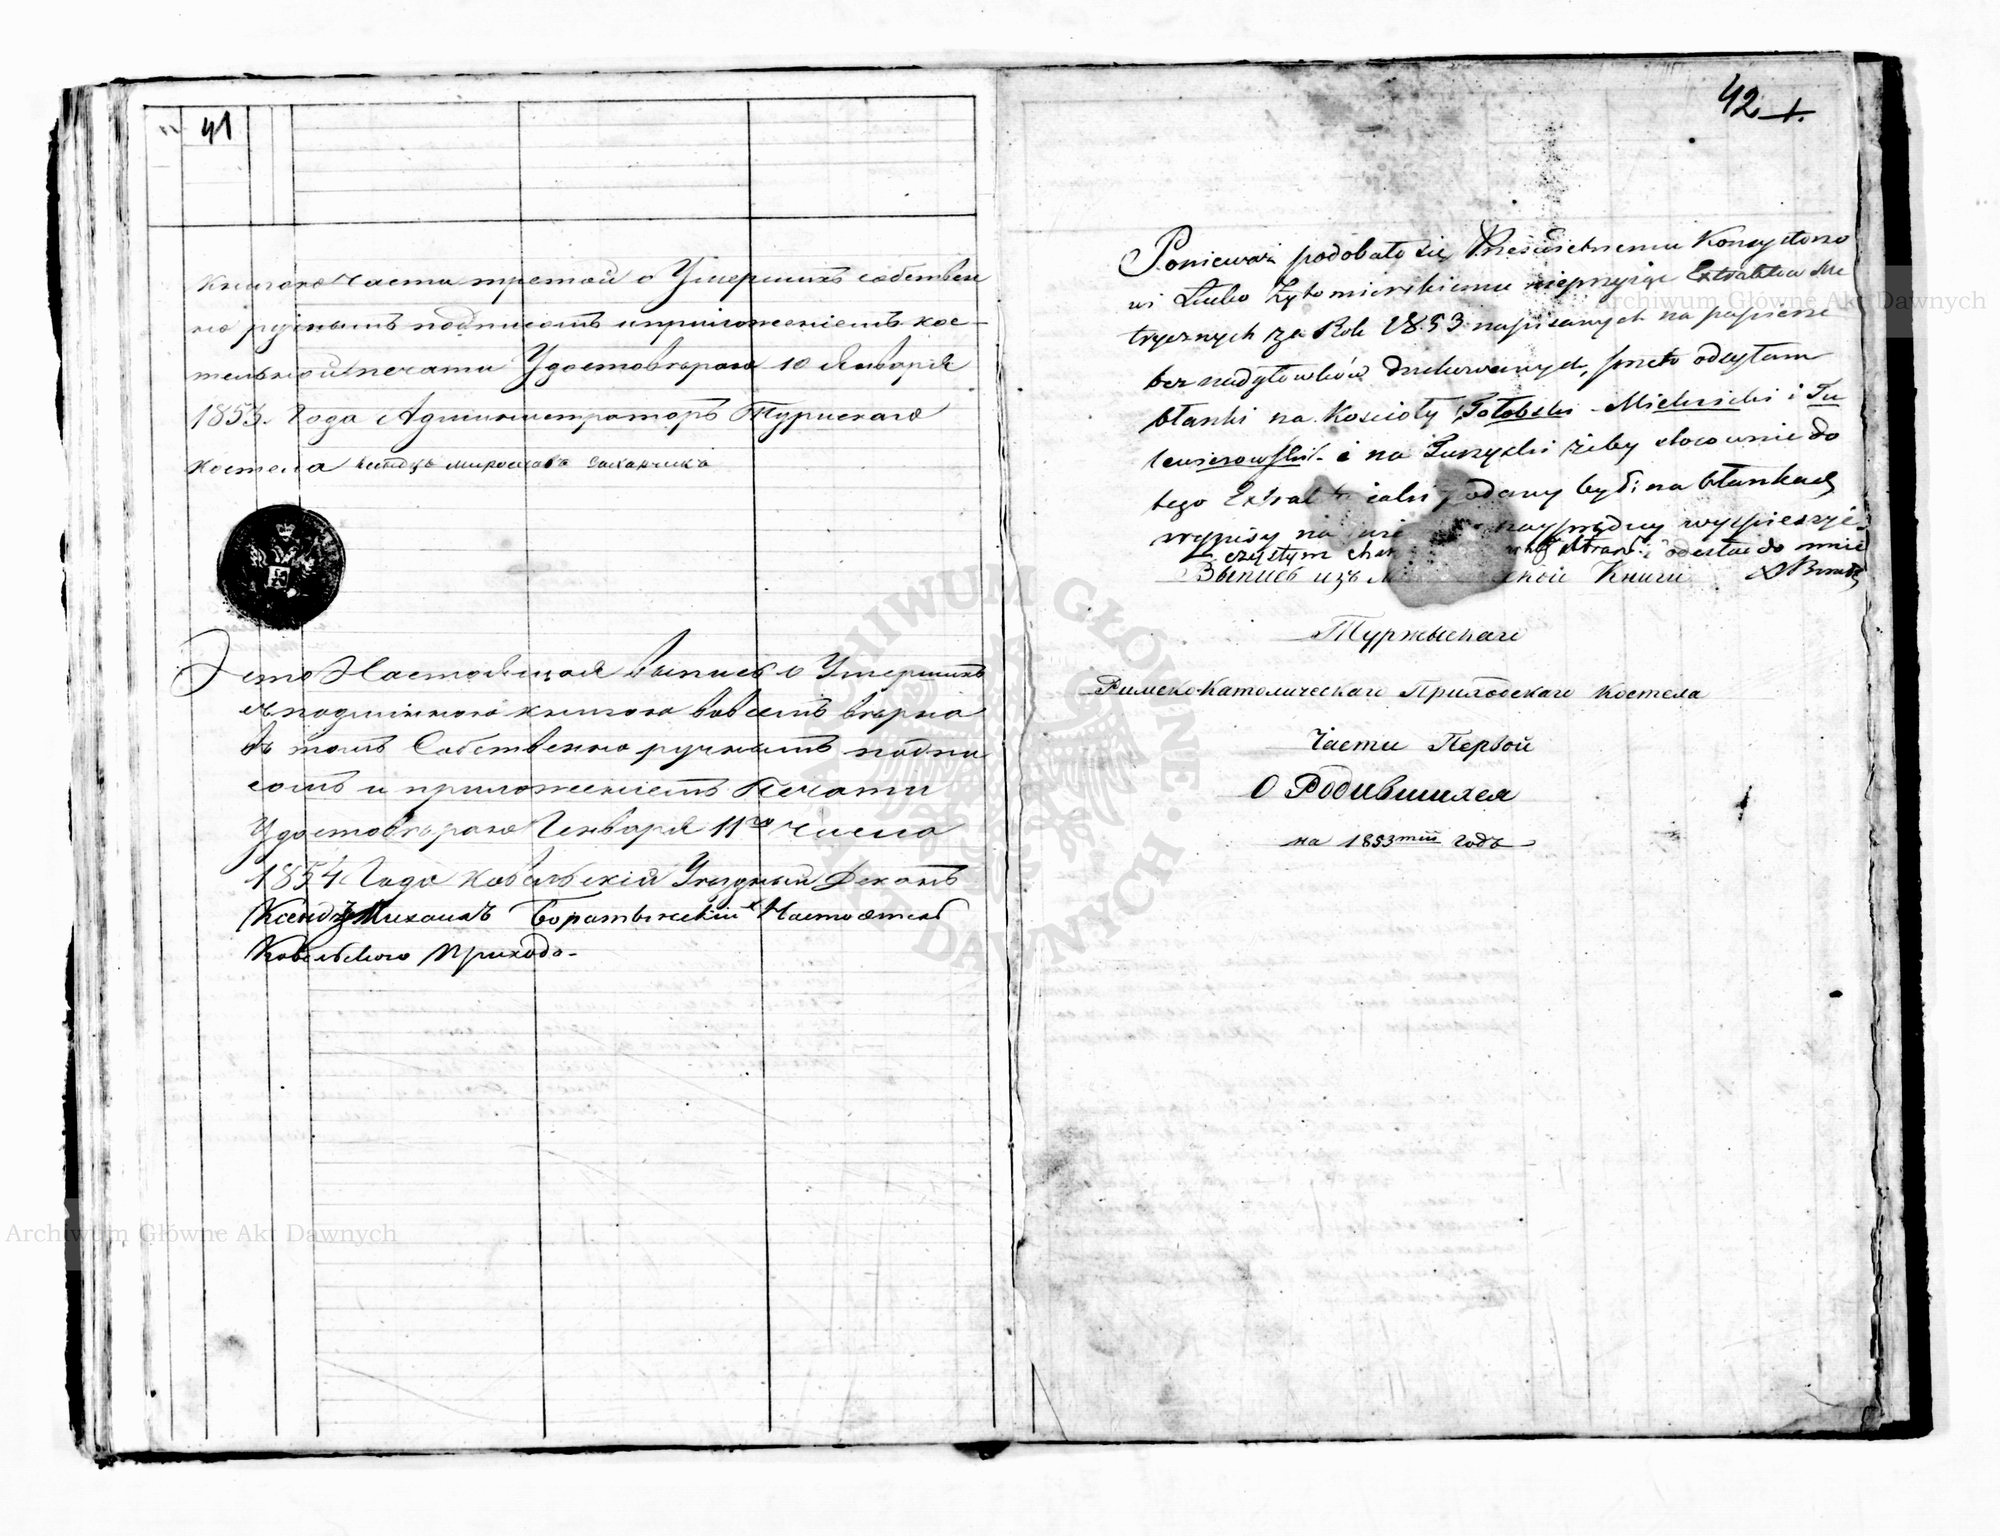 41
книгою части третой о Умершихъ собствен
но ручнымъ подписомъ и приложеніемъ кос-
тельной печати Удостовѣраю 10 Января
1853. Года Администраторъ Турискаго
Костела Ксендзъ
Что Настоящая выпись о Умершихъ
съ подлинною книгою во всемъ вѣрна
въ томъ Собственно ручнымъ подпи
сомъ и приложеніемъ Печати
Удостовѣраю Генваря 11го числа
1854 Года Ковельскій Уѣздный Деканъ
Ксендзъ Михаилъ Боратынскій Настоятель
Ковельского Прихода.
42
Ponieważ podobało się Prześwietnemu Konsystorzo
wi Łucko Żytomierskiemu nieprzyjąć Extraktów Me
trycznych za Rok 1853 napisanych na papierze
bez nadgłówków drukowanych, przeto odsyłam
blanki na Kościoły Hołobski Mielnicki i Tu
i na Turzyski żeby słownie do
tego byli na blankach
wypisy
czystym odesłać do mnie
Выпись изъ Книги
Туржыскаго
Римско-Католическаго Приходскаго Костела
Части Первой
О Родившихся
на 1853тій годъ
Archiwum Główne Akt Dawnych
Archiwum Główne Akt Dawnych
ARCHIWUM GŁÓWNE AKT DAWNYCH